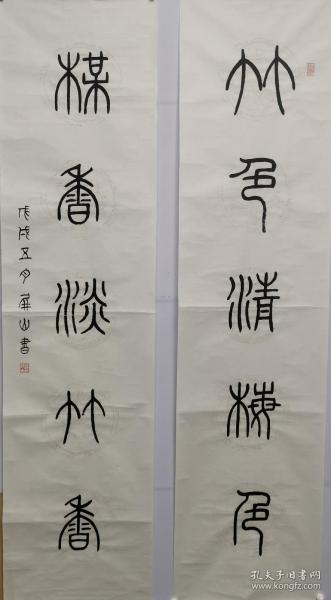 竹色清梅色
楳香淡竹香
戊戌五月屏山書
孔夫子旧书网